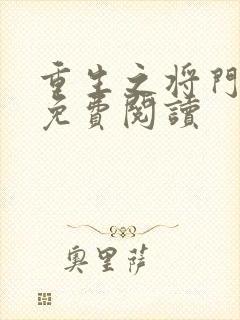 重生之将門
免費閱讀
奧里薩